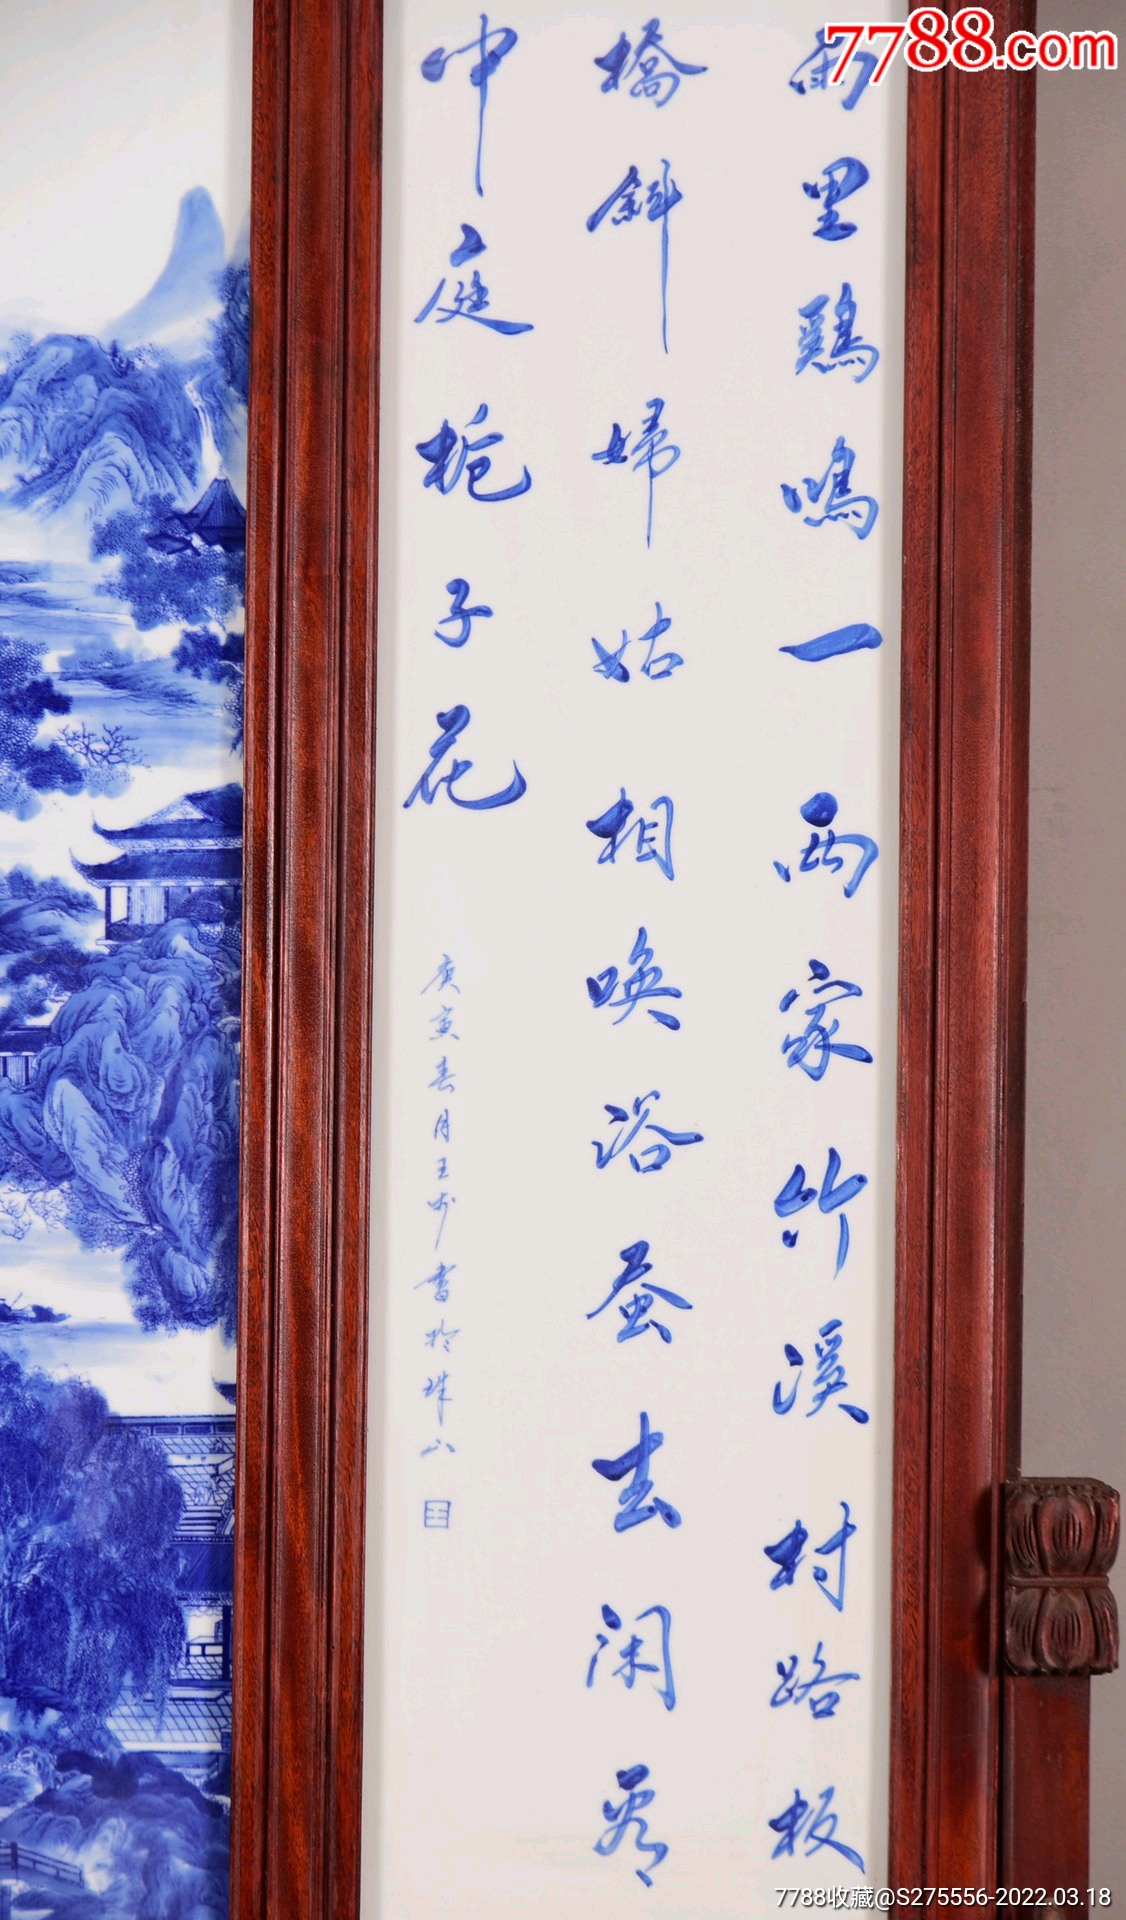 7788.com
雨里鷄鳴一两家竹溪村路板
橋斜婦姑相唤浴蚕去闲看
中庭栀子花
庚寅春月王步書於珠山
王
7788收藏@S275556-2022.03.18